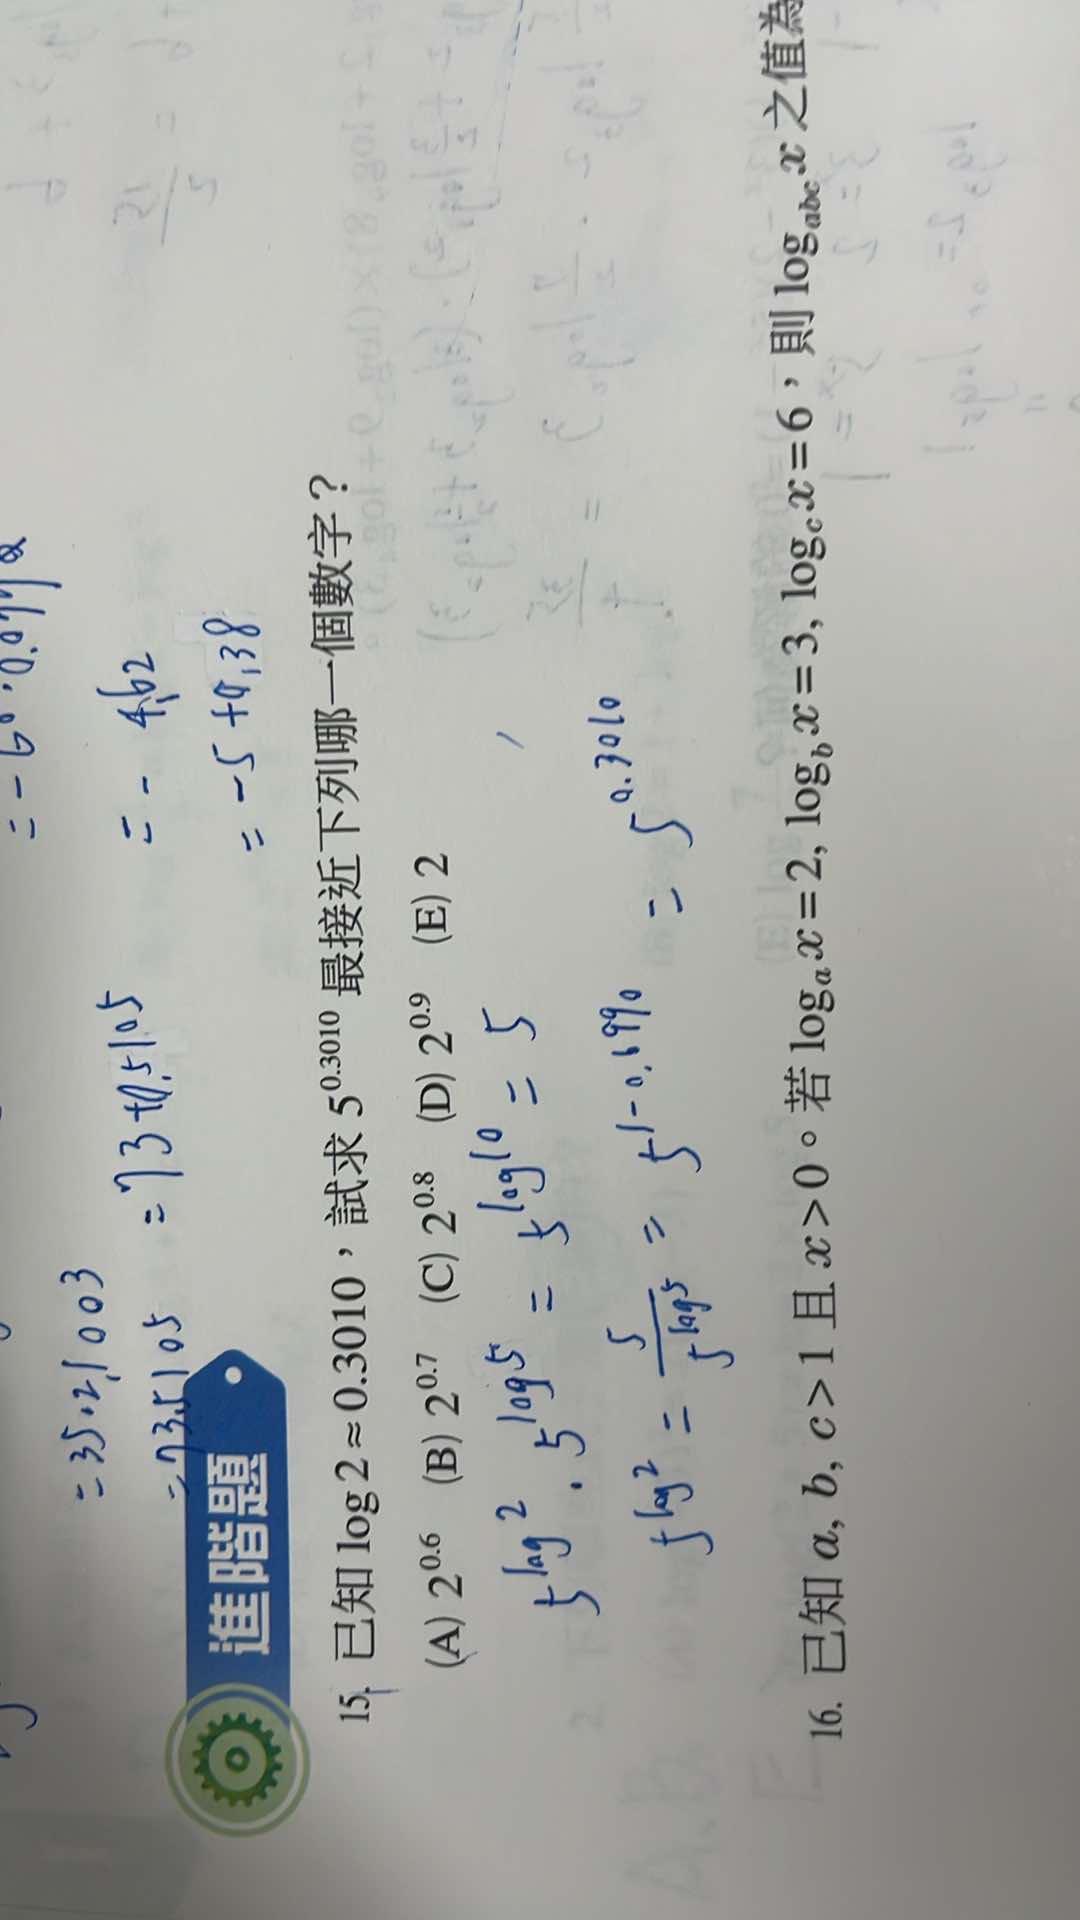 = 35.21003
= 73.5105 = 73 + 0.5105
= - 4.62
= -5 + 0.38
進階題
15. 已知 log 2 ≈ 0.3010，試求 5^0.3010 最接近下列哪一個數字？
(A) 2^0.6 (B) 2^0.7 (C) 2^0.8 (D) 2^0.9 (E) 2
5^log 2 . 5^log5 = 5^log10 = 5
5^log2 = 5/5^log5 = 5^1-0.6990 = 5^0.3010
16. 已知 a, b, c > 1 且 x > 0。若 log_a x = 2, log_b x = 3, log_c x = 6，則 log_abc x 之值為